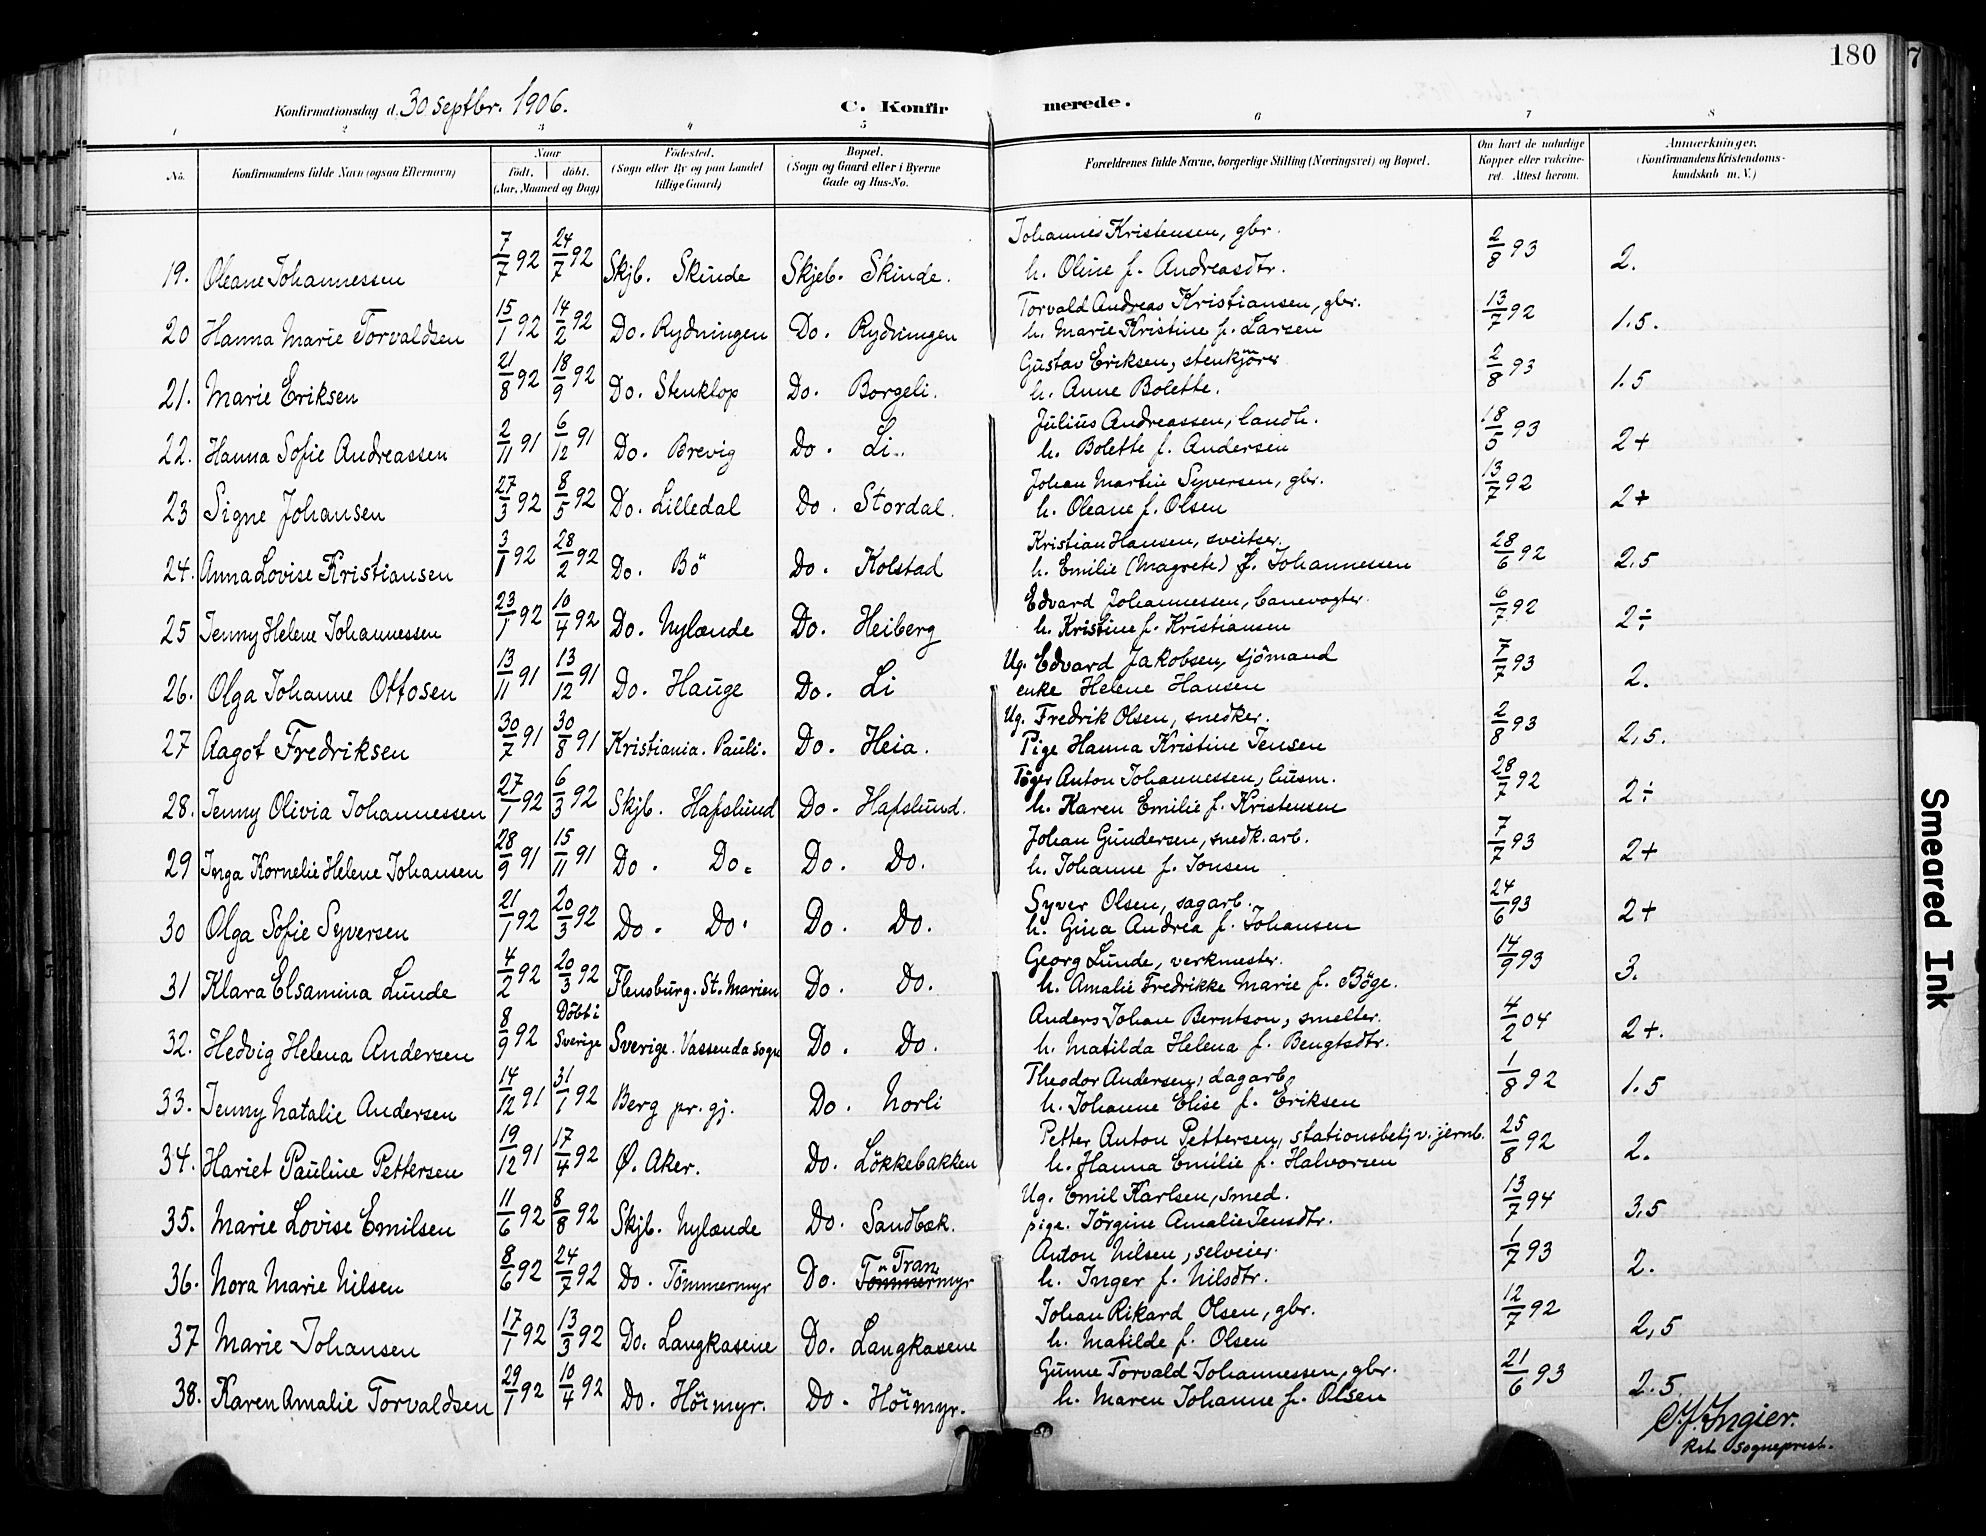 180
7
Konfirmationsdag d. 30 septbr. 1906.
C. Konfirmerede.
1 2 3 4 5 6 7 8
No. Konfirmandens fulde Navn (ogsaa Efternavn) Naar født. døbt. (Aar, Maaned og Dag) Fødested. (Sogn eller By og paa Landet tillige Gaard) Bopæl. (Sogn og Gaard eller i Byerne Gade og Hus-No. Forældrenes fulde Navne, borgerlige Stilling (Næringsvei) og Bopæl. Om havt de naturlige Kopper eller vakcineret. Attest herom. Anmærkninger. (Konfirmandens Kristendomskundskab m. V.)
Johannes Kristensen, gbr.
19. Oleane Johannessen 7/7 92 24/7 92 Skjb. Skinde Skjeb. Skinde. h. Oline f. Andreasdtr. 2/8 93 2.
Torvald Andreas Kristiansen, gbr.
20 Hanna Marie Torvaldsen 15/1 92 14/2 92 Do. Rydningen Do. Rydningen h. Marie Kristine f. Larsen 13/7 92 1.5.
Gustav Eriksen, stenkjörer
21. Marie Eriksen 21/8 92 18/9 92 Do. Stenklop Do. Borgeli. h. Anne Bolette. 2/8 93 1.5
Julius Andreassen, landh.
22. Hanna Sofie Andreassen 2/11 91 6/12 91 Do. Brevig Do. Li. h. Bolette f. Andersen 18/5 93 2+
Johan Martin Syversen, gbr.
23 Signe Johansen 27/3 92 8/5 92 Do. Lilledal Do. Stordal. h. Oleane f. Olsen 13/7 92 2+
Kristian Hansen, sveitser.
24. Anna Lovise Kristiansen 3/1 92 28/2 92 Do. Bö Do. Kolstad h. Emilie (Magrete) f. Johannessen 28/6 92 2,5
Edvard Johannessen, banevogter.
25 Jenny Helene Johannessen 23/1 92 10/4 92 Do. Nylænde Do. Heiberg h. Kristine f. Kristiansen 6/7 92 2÷
Ug. Edvard Jakobsen, sjömand
26. Olga Johanne Ottosen 13/11 91 13/12 91 Do. Hauge Do. Li enke Helene Hansen 7/7 93 2.
Ug. Fredrik Olsen, snedker.
27 Aagot Fredriksen 30/7 91 30/8 91 Kristiania. Pauli. Do. Heia. Pige Hanna Kristine Jensen 2/8 93 2,5.
Töger Anton Johannessen, husm.
28. Jenny Olivia Johannessen 27/1 92 6/3 92 Skjb. Hafslund Do. Hafslund. h. Karen Emilie f. Kristensen 28/7 92 2÷
Johan Gundersen, snedk.arb.
29 Inga Kornelie Helene Johansen 28/9 91 15/11 91 Do. Do. Do. Do. h. Johanne f. Jonsen 7/7 93 2+
Syver Olsen, sagarb.
30 Olga Sofie Syversen 21/1 92 20/3 92 Do. Do. Do. Do. h. Gina Andrea f. Johansen 24/6 93 2+
Georg Lunde, verkmester.
31 Klara Elsamina Lunde 4/2 92 20/3 92 Flensburg. St. Marien Do. Do. h. Amalie Fredrikke Marie f. Böge. 14/9 93 3.
Anders Johan Berntson, smelter.
32. Hedvig Helena Andersen 8/9 92 Döbt i Sverige Sverige. Vassenda sogn Do. Do. h. Matilda Helena f. Bengtsdtr. 4/2 04 2+.
Theodor Andersen, dagarb.
33. Jenny Natalie Andersen 14/12 91 31/1 92 Berg pr. gj. Do. Norli h. Johanne Elise f. Eriksen 1/8 92 1.5
Petter Anton Pettersen, stationsbetj v. jernb.
34. Hariet Pauline Pettersen 19/12 91 17/4 92 Ø. Aker. Do. Lökkebakken h. Hanna Emilie f. Halvorsen 25/8 92 2.
Ug. Emil Karlsen, smed.
35. Marie Lovise Emilsen 11/6 92 8/8 92 Skjb. Nylænde Do. Sandbæk. pige. Jörgine Amalie Jensdtr. 13/7 94 3,5
Anton Nilsen, selveier.
36. Nora Marie Nilsen 8/6 92 24/7 92 Do. Tömmermyr Do. Tran Tömmermyr h. Inger f. Nilsdtr. 1/7 93 2.
Johan Rikard Olsen, gbr.
37 Marie Johansen 17/1 92 13/3 92 Do. Langkasene Do. Langkasene h. Matilde f. Olsen 12/7 92 2,5
Gunne Torvald Johannessen, gbr.
38. Karen Amalie Torvaldsen 29/1 92 10/4 92 Do. Höimyr. Do. Höimyr. h. Maren Johanne f. Olsen 21/6 93 2.5
Ingier.
Rst. Sogneprest.
Smeared Ink